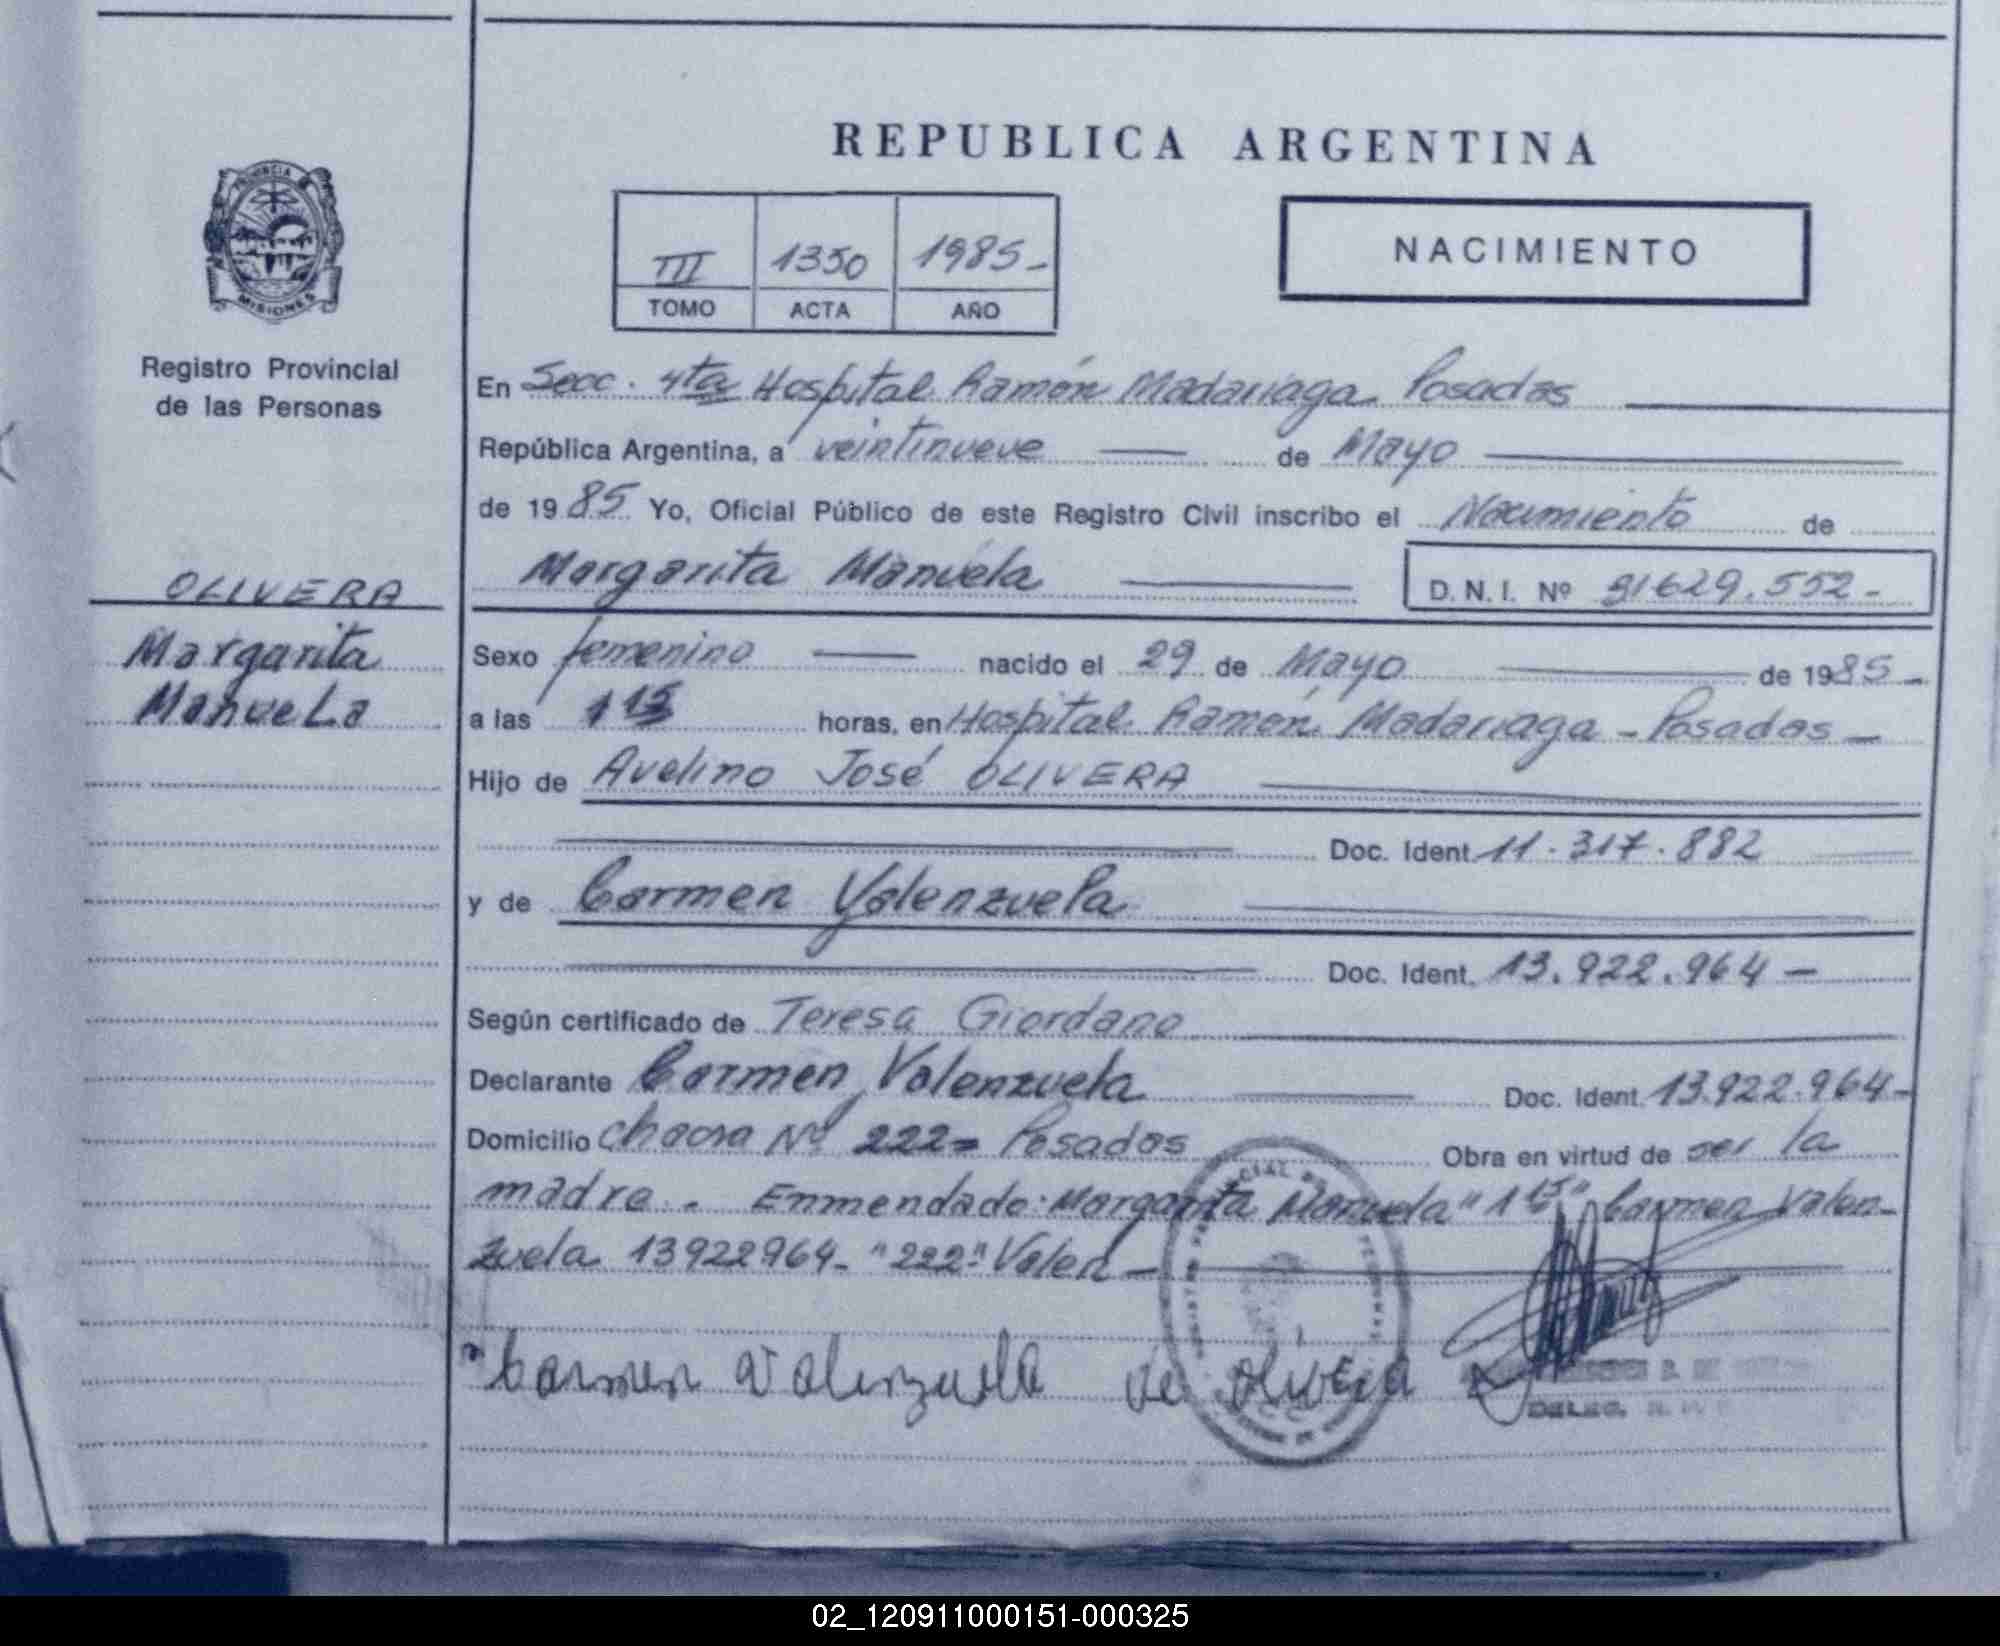 REPUBLICA ARGENTINA
PROVINCIA DE
MISIONES
Registro Provincial
de las Personas
III 1350 1985-
TOMO ACTA AÑO
NACIMIENTO
En Secc. 4ta Hospital Ramón Madariaga Posadas
República Argentina, a veintinueve de Mayo
de 1985 Yo, Oficial Público de este Registro Civil inscribo el Nacimiento de
Margarita Manuela D.N.I. Nº 31629.552-
OLIVERA
Margarita
Manuela
Sexo femenino nacido el 29 de Mayo de 1985-
a las 1 15 horas, en Hospital Ramón Madariaga - Posadas -
Hijo de Avelino José OLIVERA
Doc. Ident. 11.317.882
y de Carmen Valenzuela
Doc. Ident. 13.922.964 -
Según certificado de Teresa Giordano
Declarante Carmen Valenzuela Doc. Ident. 13.922.964-
Domicilio Chacra Nº 222= Posadas Obra en virtud de ser la
madre. Enmendado: Margarita Manuela" 1 15" Carmen Valen-
zuela 13922964- "222" Valen -
Carmen Valenzuela de Olivera
DELEG.
02_120911000151-000325